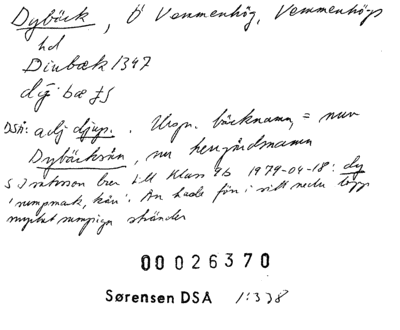 Dybäck, Ö Vemmenhög, Vemmenhögs
hd
Diubæk 1347
dȳ bæ
DSÅ: adj djup. Urspr. bäcknamn, = nuv
Dybäcksån, nu herrgårdsnamn
S Isaksson brev till Klas 1979-04-18: dy
'sumpmark, kärr'. Ån hade förr i sitt nedre lopp
mycket sumpiga stränder
00026370
Sørensen DSA 1:338